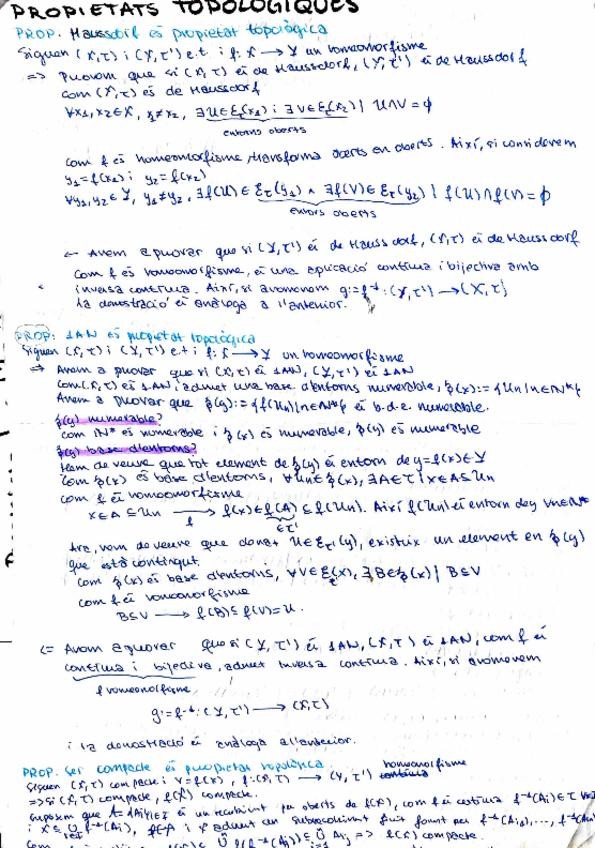 PROPIETATS TOPOLÒGIQUES
PROP. Haussdorf és propietat topològica
Siguen (X,τ) i (Y,τ') e.t i f: X → Y un homeomorfisme
=> Provem que si (X,τ) és de Haussdorf, (Y,τ') és de Haussdorf
com (X,τ) és de Haussdorf
∀x1,x2∈X, x1≠x2, ∃U∈Ɛτ(x1) i ∃V∈Ɛτ(x2) | U∩V=ϕ
entorns oberts
com f és homeomorfisme transforma oberts en oberts. Així, si considerem
y1=f(x1) i y2=f(x2)
∀y1,y2∈Y, y1≠y2, ∃f(U)∈Ɛτ(y1) ∧ ∃f(V)∈Ɛτ(y2) | f(U)∩f(V)=ϕ
entorns oberts
<- Anem a provar que si (Y,τ') és de Haussdorf, (X,τ) és de Haussdorf
com f és homeomorfisme, és una aplicació contínua i bijectiva amb
inversa contínua. Així, si anomenem g:=f⁻¹:(Y,τ')→(X,τ)
la demostració és anàloga a l'anterior.
PROP: 1AN és propietat topològica
Siguen (X,τ) i (Y,τ') e.t i f: X→Y un homeomorfisme
=> Anem a provar que si (X,τ) és 1AN, (Y,τ') és 1AN
com (X,τ) és 1AN, admet una base d'entorns numerable, β(x):={Un|n∈N*}
Anem a provar que β(y):={f(Un)|n∈N*} és b.d.e. numerable.
β(y) numerable?
com N* és numerable i β(x) és numerable, β(y) és numerable
β(y) base d'entorns?
Hem de veure que tot element de β(y) és entorn de y=f(x)∈Y
Com β(x) és base d'entorns, ∀Un∈β(x), ∃A∈τ | x∈A⊆Un
com f és homeomorfisme
x∈A⊆Un → f f(x)∈f(A)⊆f(Un). Així f(Un) és entorn de y ∀n∈N*
∈τ'
Ara, hem de veure que donat U∈Ɛτ'(y), existeix un element en β(y)
que està contingut
com β(x) és base d'entorns, ∀V∈Ɛτ(x), ∃B∈β(x) | B⊆V
com f és homeomorfisme
B⊆V → f(B)⊆f(V)=U.
<= Anem a provar que si (Y,τ') és 1AN, (X,τ) és 1AN, com f és
contínua i bijectiva, admet inversa contínua. Així, si anomenem
f homeomorfisme
g:=f⁻¹:(Y,τ') → (X,τ)
i la demostració és anàloga a l'anterior.
PROP. Ser compacte és propietat topològica.
homeomorfisme
Siguen (X,τ) compacte i Y=f(X), f:(X,τ) → (Y,τ') contínua
=> si (X,τ) compacte, f(X) compacte.
Suposem que A={Ai}i∈I és un recobriment per oberts de f(X), com f és contínua f⁻¹(Ai)∈τ